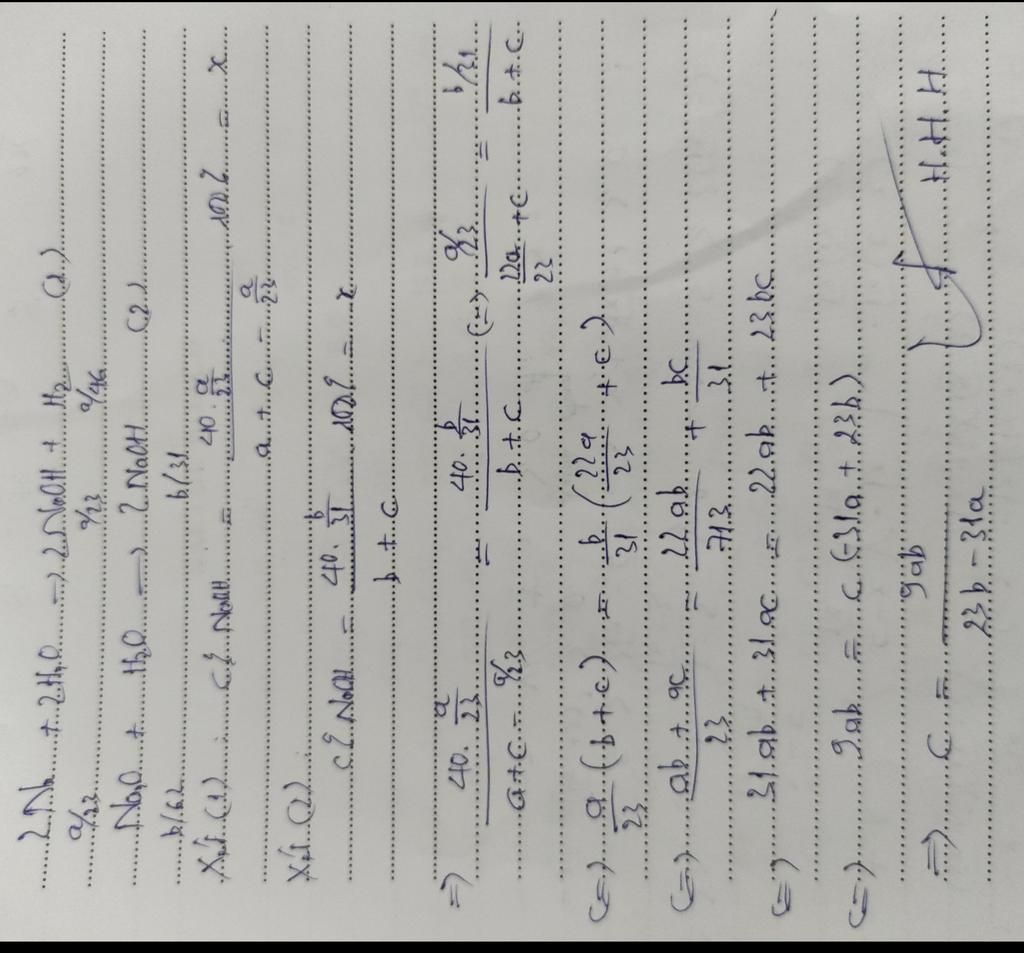 2Na + 2H₂O → 2NaOH + H₂ (1)
a/23 a/23 a/46
Na₂O + H₂O → 2NaOH (2)
b/62 b/31
Xét (1) : C% NaOH = (40 . a/23) / (a + c - a/23) 100% = x
Xét (2)
C% NaOH = (40 . b/31) / (b + c) 100% = x
=> (40 . a/23) / (a + c - a/23) = (40 . b/31) / (b + c) (=) (a/23) / (22a/23 + c) = (b/31) / (b + c)
(=) a/23 (b + c) = b/31 (22a/23 + c)
(=) (ab + ac)/23 = 22ab/713 + bc/31
(=) 31ab + 31ac = 22ab + 23bc
(=) 9ab = c (-31a + 23b)
=> c = 9ab / (23b - 31a)
H.H.H